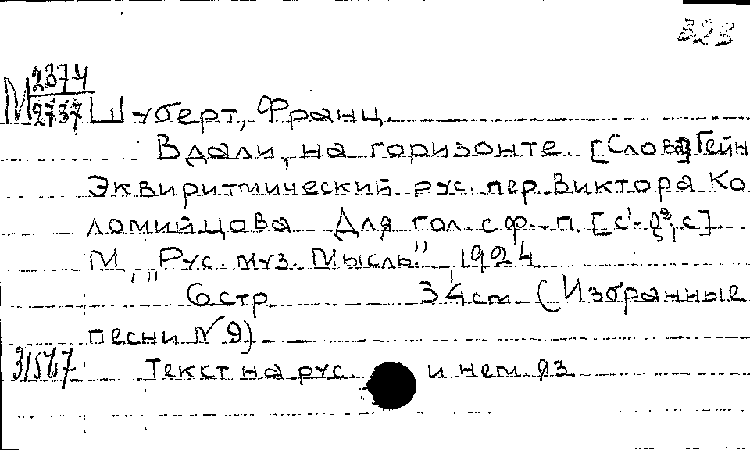 323
М 2374
2737 Шуберт, Франц.
Вдали, на горизонте. [Слова Гейн
Эквиритмический рус. пер. Виктора Ко
ломийцова Для гол. с ф.-п.
М., "Рус. муз. Мысль" 1924
6 стр. 34 см. (Избранные
песни № 9)
Текст на рус. и нем. яз.